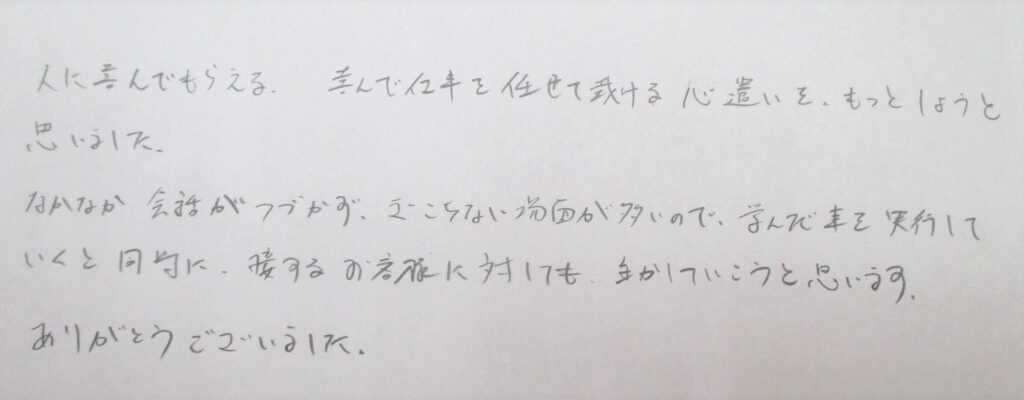 人に喜んでもらえる. 喜んで仕事を任せて戴ける心遣いを、もっとしようと
思いました.
なかなか会話がつづかず、ぎこちない場面が多いので、学んだ事を実行して
いくと同時に、接するお客様に対しても、生かしていこうと思います.
ありがとうございました.